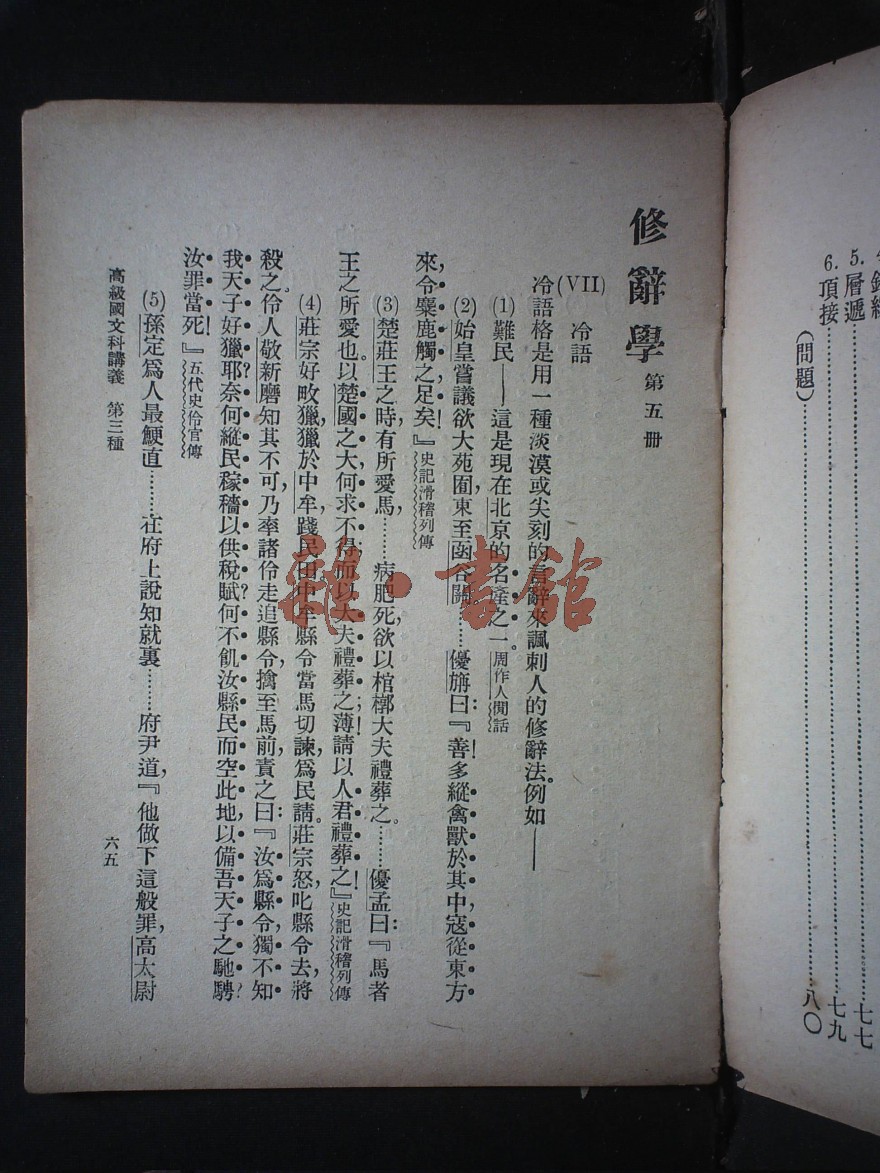 …………七七
5. 層遞
6. 頂接…………七九
（問題）…………八〇
修辭學 第五冊
(VII) 冷語
冷語格是用一種淡漠或尖刻的言辭來諷刺人的修辭法。例如——
(1) 難民——這是現在北京的名產之一。周作人閒話
(2) 始皇嘗議欲大苑囿，東至函谷關……優旃曰：『善！多縱禽獸於其中，寇從東方
來，令麋鹿觸之足矣！』史記滑稽列傳
(3) 楚莊王之時，有所愛馬，……病肥死，欲以棺槨大夫禮葬之。……優孟曰：『馬者
王之所愛也。以楚國之大，何求不得；而以大夫禮葬之，薄；請以人君禮葬之！』史記滑稽列傳
(4) 莊宗好畋獵，獵於中牟，踐民田，中牟縣令當馬切諫，爲民請。莊宗怒，叱縣令去，將
殺之。伶人敬新磨知其不可，乃率諸伶走追縣令，擒至馬前，責之曰：『汝爲縣令，獨不知
我天子好獵耶？奈何縱民稼穡以供稅賦？何不飢汝縣民而空此地，以備吾天子之馳騁？
汝罪當死！』五代史伶官傳
(5) 孫定爲人最鯁直……在府上說知就裏……府尹道，『他做下這般罪，高太尉
高級國文科講義 第三種
六五
雜·書館